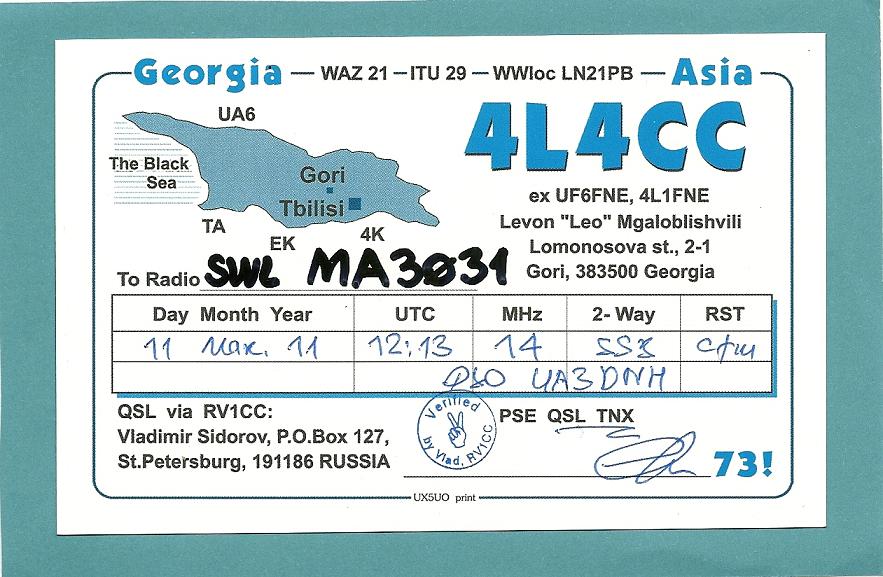 Georgia — WAZ 21 — ITU 29 — WWloc LN21PB — Asia
4L4CC
UA6
The Black
Sea
Gori
Tbilisi
TA
EK
4K
ex UF6FNE, 4L1FNE
Levon "Leo" Mgaloblishvili
Lomonosova st., 2-1
Gori, 383500 Georgia
To Radio SWL MA3Ø31
Day Month Year UTC MHz 2- Way RST
11 Mar. 11 12:13 14 SSB cfm
QSO UA3DNH
QSL via RV1CC:
Vladimir Sidorov, P.O.Box 127,
St.Petersburg, 191186 RUSSIA
Verified
by Vlad, RV1CC
PSE QSL TNX
73!
UX5UO print